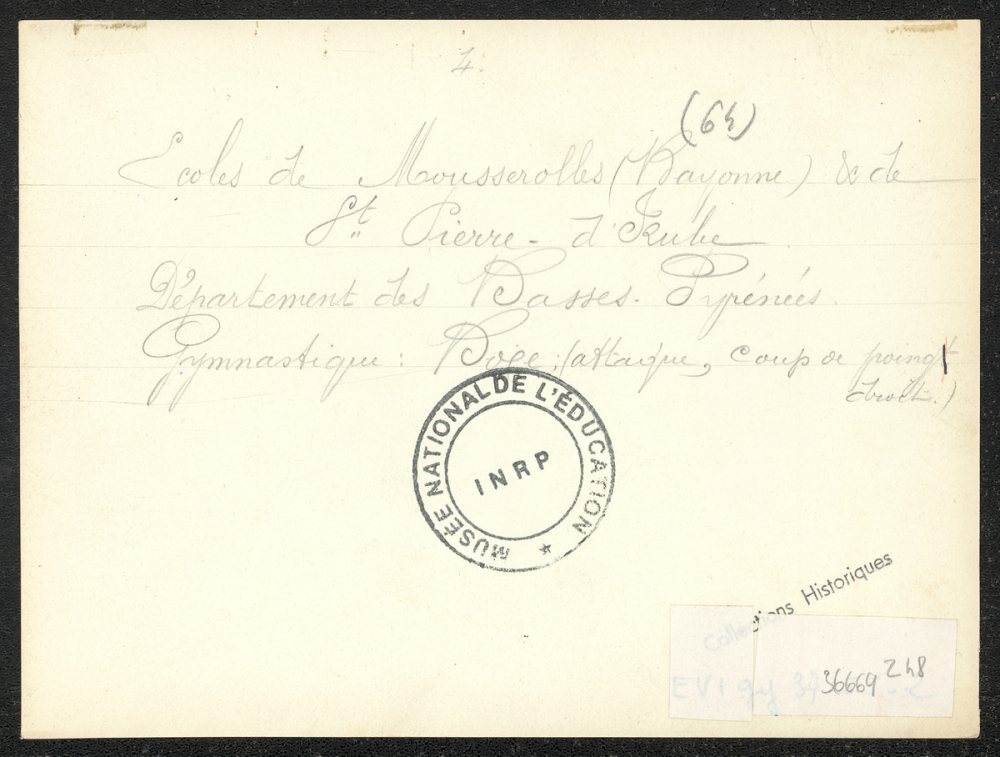 4.
(64)
Ecoles de Mousserolles (Bayonne) & de
St Pierre - d'Irube
Département des Basses-Pyrénées.
Gymnastique : Boxe ; (attaque, coup de poing
droit.)
MUSÉE NATIONAL DE L'ÉDUCATION
INRP
Collections Historiques
36669 248